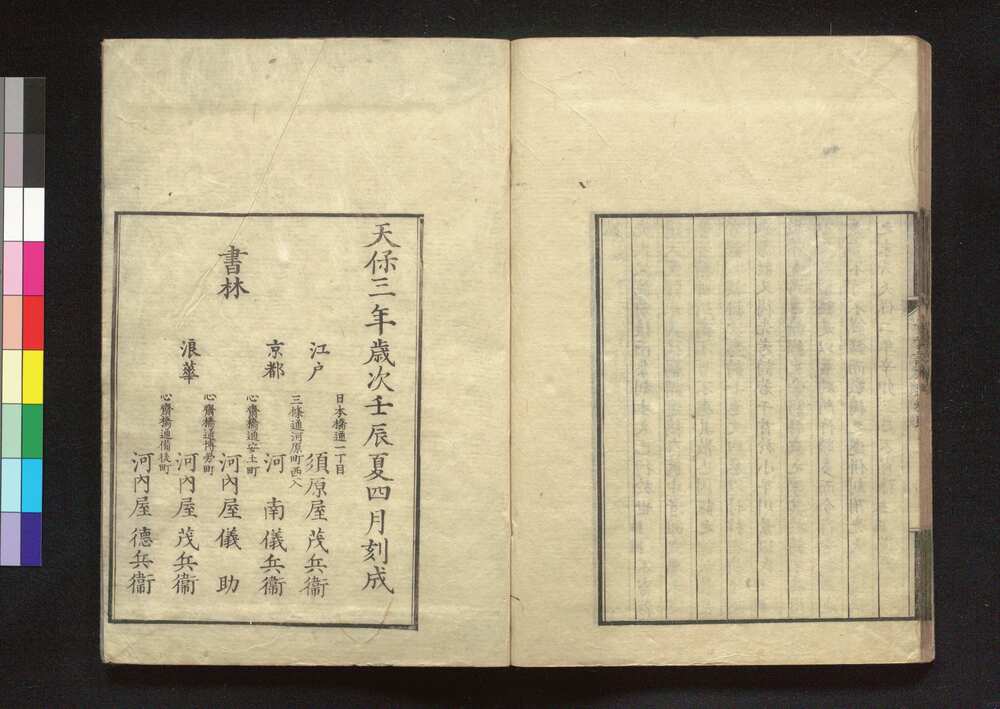 天保三年歳次壬辰夏四月刻成
江戸
日本橋通一丁目
須原屋茂兵衞
京都
三條通河原町西入
河南儀兵衞
書林
心齋橋通安土町
河內屋儀助
浪華
心齋橋通博労町
河內屋茂兵衞
心齋橋通備後町
河內屋德兵衞